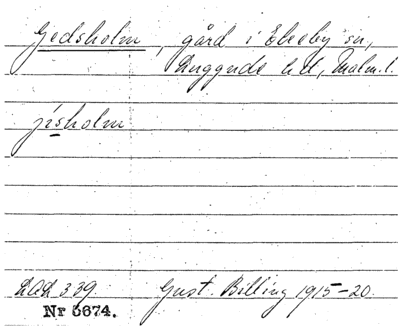 Gedsholm, gård i Ekeby sn,
Luggude hd, Malm. l.
jisholm
LAL 339 Gust. Billing 1915-20.
Nr 5674.